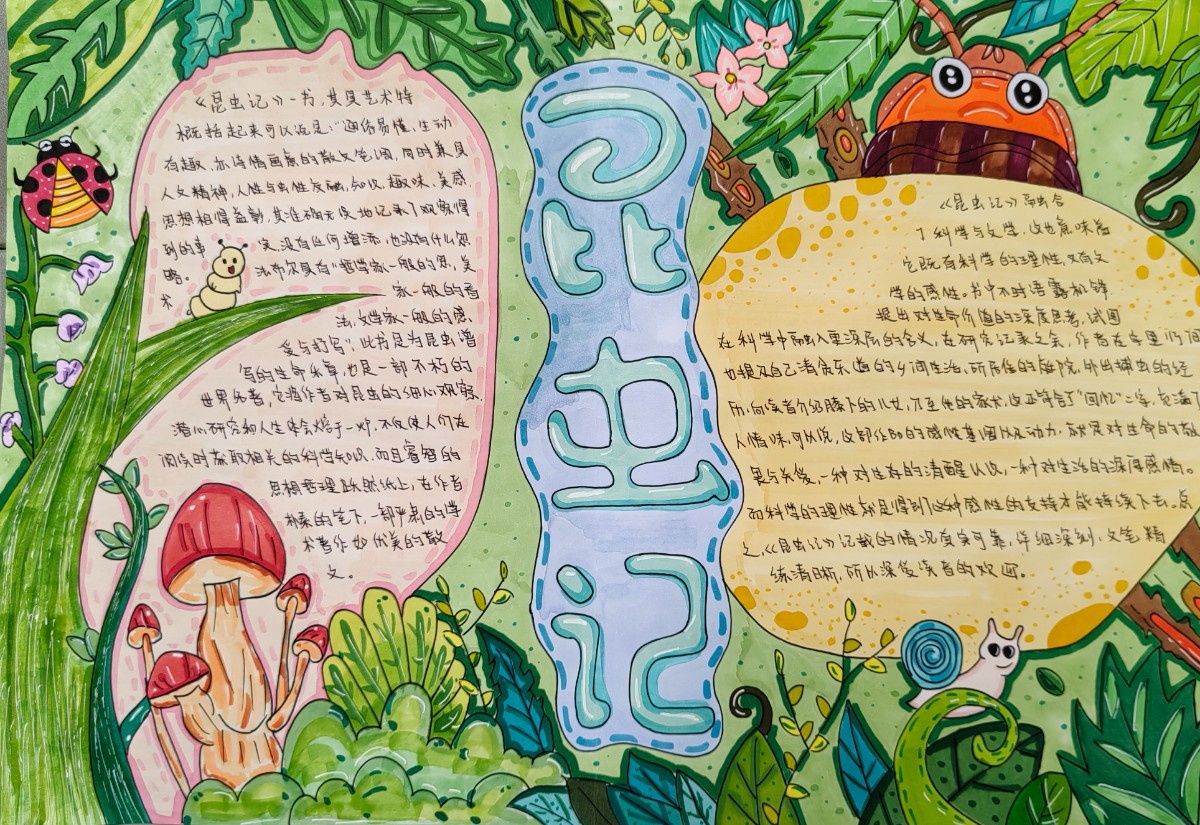 《昆虫记》一书，其具艺术特
概括起来可以说是：“通俗易懂，生动
有趣，亦诗情画意的散文笔调，同时兼具
人文精神，人性与虫性交融，知识、趣味、美感、
思想相得益彰，其准确无误地记录了观察得
到的事实，没有任何增添，也没有什么忽
略。法布尔具有“哲学家一般的思，美
术家一般的看
法，文学家一般的感
受与抒写”，此书是为昆虫谱
写的生命乐章，也是一部不朽的
世界名著，它将作者对昆虫的细心观察、
潜心研究和人生体会熔于一炉，不仅使人们在
阅读时获取相关的科学知识，而且睿智的
思想哲理跃然纸上，在作者
朴素的笔下，一部严肃的学
术著作如优美的散
文。
昆虫记
《昆虫记》融合
了科学与文学，这也意味着
它既有科学的理性，又有文
学的感性。书中不时语露机锋，
提出对生命价值的深度思考，试图
在科学中融入更深层的含义，在研究记录之余，作者在字里行间
也提及自己清贫乐道的乡间生活，所居住的庭院，外出捕虫的经
历，向读者介绍膝下的儿女，乃至他的家犬，这正符合了“回忆”二字，充满了
人情味，可以说，这部作品的感性基调以及动力，就是对生命的敬
畏与关爱，一种对生存的清醒认识，一种对生活的深厚感情。
而科学的理性就是得到这种感性的支持才能持续下去。总
之，《昆虫记》记载的情况真实可靠，详细深刻，文笔精
练清晰，所以深受读者的欢迎。